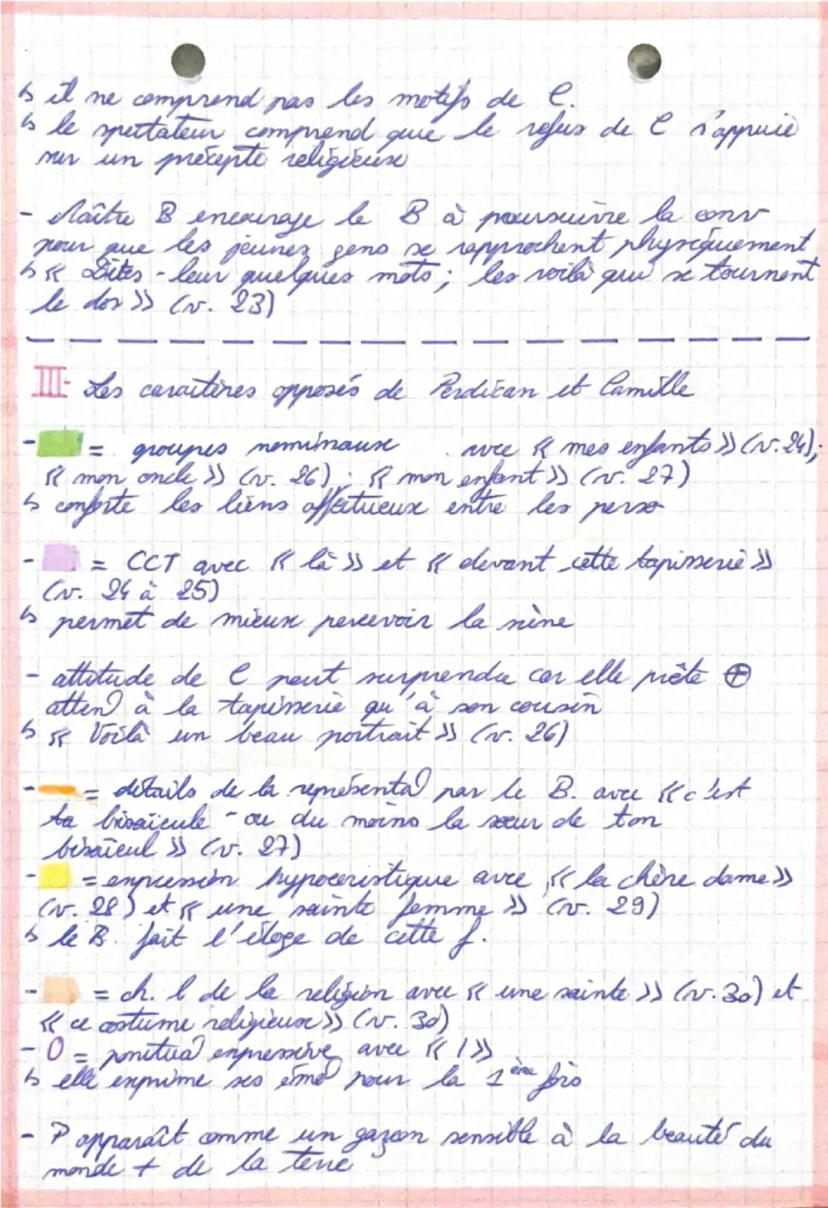 ↳ il ne comprend pas les motifs de C.
↳ le spectateur comprend que le refus de C s'appuie
sur un précepte religieux
- Maître B encourage le B à poursuivre la conv
pour que les jeunes gens se rapprochent physiquement
↳ « Dites-leur quelques mots ; les voilà qui se tournent
le dos » (v. 23)
III- Les caractères opposés de Perdican et Camille
- = groupes nominaux avec « mes enfants » (v. 24) ;
« mon oncle » (v. 26) ; « mon enfant » (v. 27)
↳ conforte les liens affectueux entre les perso
- = CCT avec « là » et « devant cette tapisserie »
(v. 24 à 25)
↳ permet de mieux percevoir la scène
- attitude de C peut surprendre car elle prête ⊕
attent° à la tapisserie qu'à son cousin
↳ « Voilà un beau portrait » (v. 26)
- = détails de la représentat° par le B. avec « c'est
ta bisaïeule - ou du moins la sœur de ton
bisaïeul » (v. 27)
- = expression hypocoristique avec « la chère dame »
(v. 28) et « une sainte femme » (v. 29)
↳ le B. fait l'éloge de cette f.
- = ch. l de la religion avec « une sainte » (v. 30) et
« ce costume religieux » (v. 30)
- O = ponctuat° expressive avec « ! »
↳ elle exprime ses émot° pour la 1ère fois
- P apparaît comme un garçon sensible à la beauté du
monde + de la terre